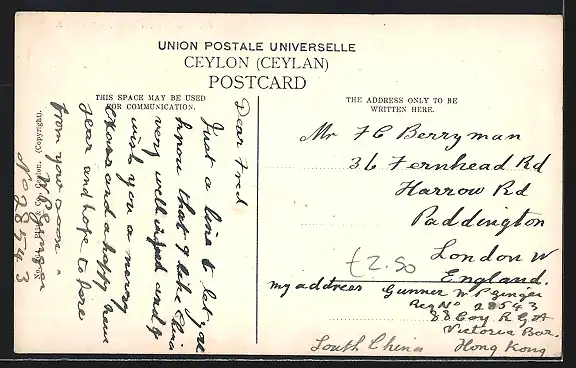 UNION POSTALE UNIVERSELLE
CEYLON (CEYLAN)
POSTCARD
THIS SPACE MAY BE USED
FOR COMMUNICATION.
THE ADDRESS ONLY TO BE
WRITTEN HERE.
Dear Fred
Just a line to let you
know that I like China
very well indeed and I
wish you a merry
Xmas and a happy new
year and hope to hear
from you soon
No 28543
Ceylon. (Copyright).
Mr F C Berryman
36 Fernhead Rd
Harrow Rd
Paddington
London W
England.
£2.50
my address Gunner W P Ginger
Reg No 28543
88 Coy R G A
Victoria Bar.
South China Hong Kong